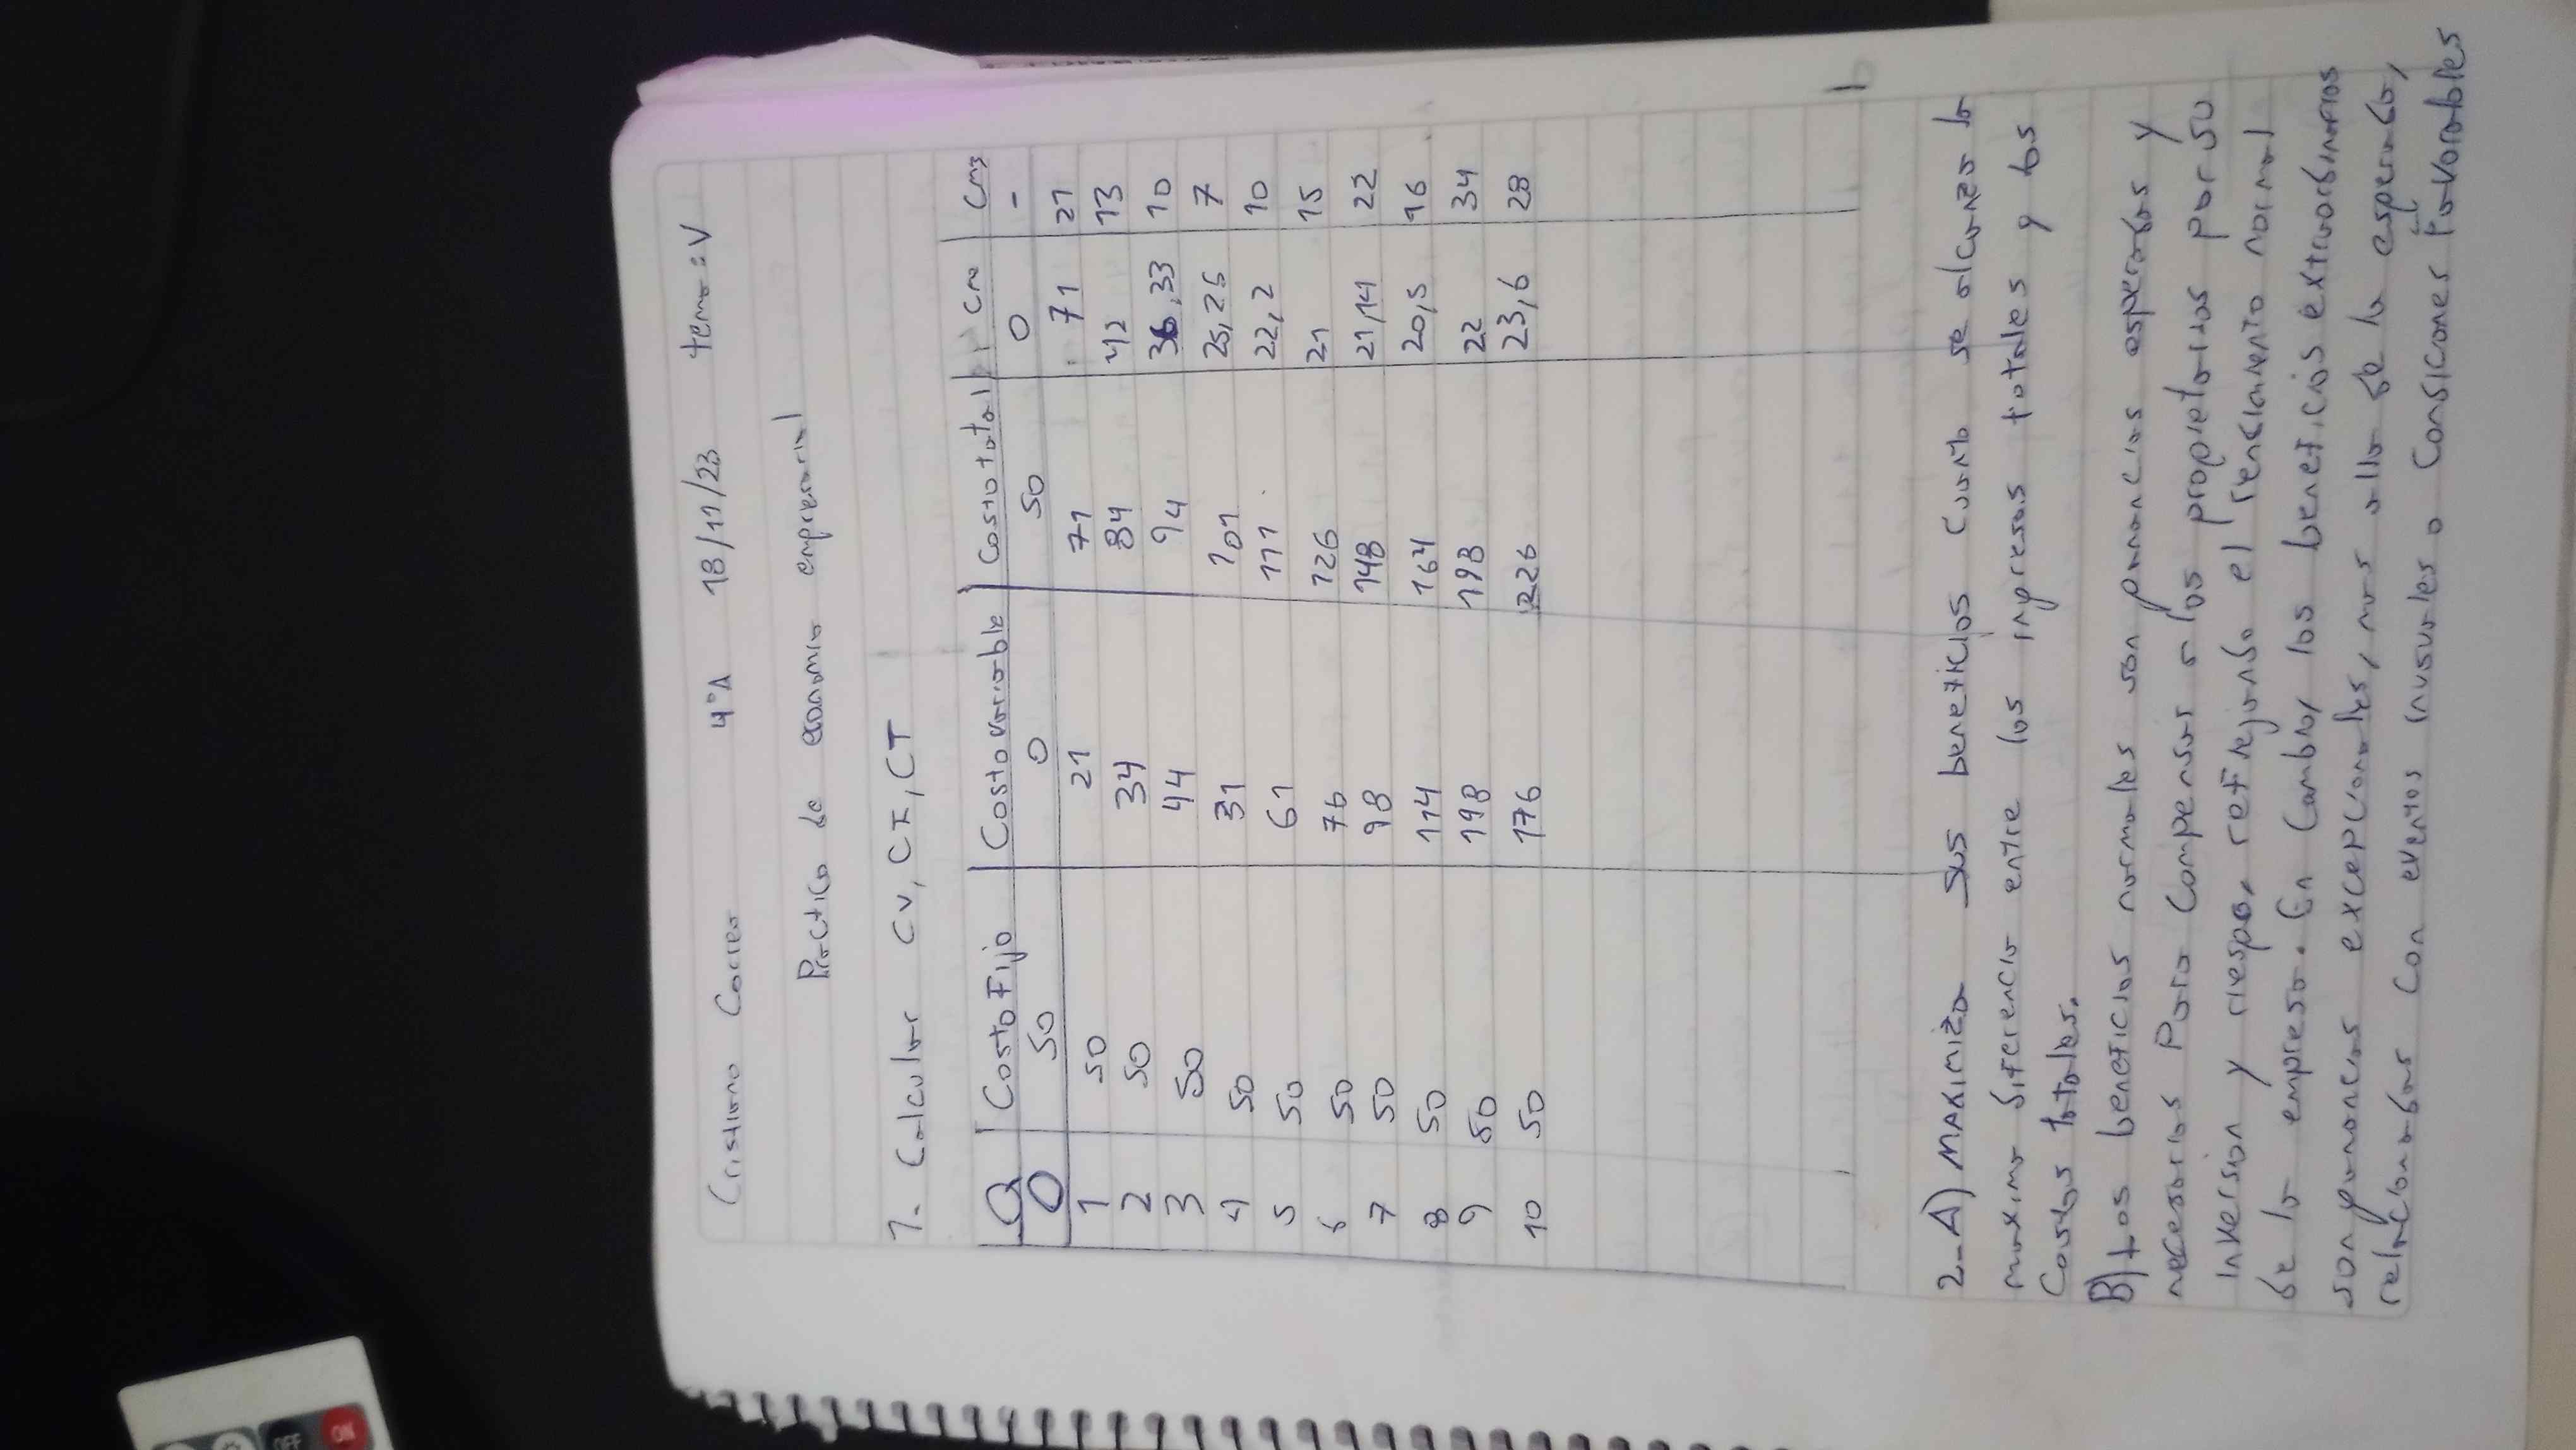 Cristiano Correa 4°A 18/11/23 tema: V
Practico de economia empresarial
1. Calcular CV, CF, CT
Q Costo Fijo Costo variable Costo total Cme Cmg
0 50 0 50 0 -
1 50 21 71 71 21
2 50 34 84 42 13
3 50 44 94 36,33 10
4 50 31 101 25,25 7
5 50 61 111 22,2 10
6 50 76 126 21 15
7 50 98 148 21,14 22
8 50 114 164 20,5 16
9 50 198 198 22 34
10 50 176 226 23,6 28
2-A) MAximiza sus beneficios cuando se alcanza la
maxima diferencia entre los ingresos totales y los
Costos totales.
B) Los beneficios normales son ganancias esperadas y
necesarias Para compensar a los propietarios por su
inversion y riesgo, reflejando el rendiamento normal
de la empresa. En cambio, los beneficios extraordinarios
son ganancias excepcionales, mas alla de lo esperado,
relacionadas con eventos inusuales o condiciones favorables
OFF
ON